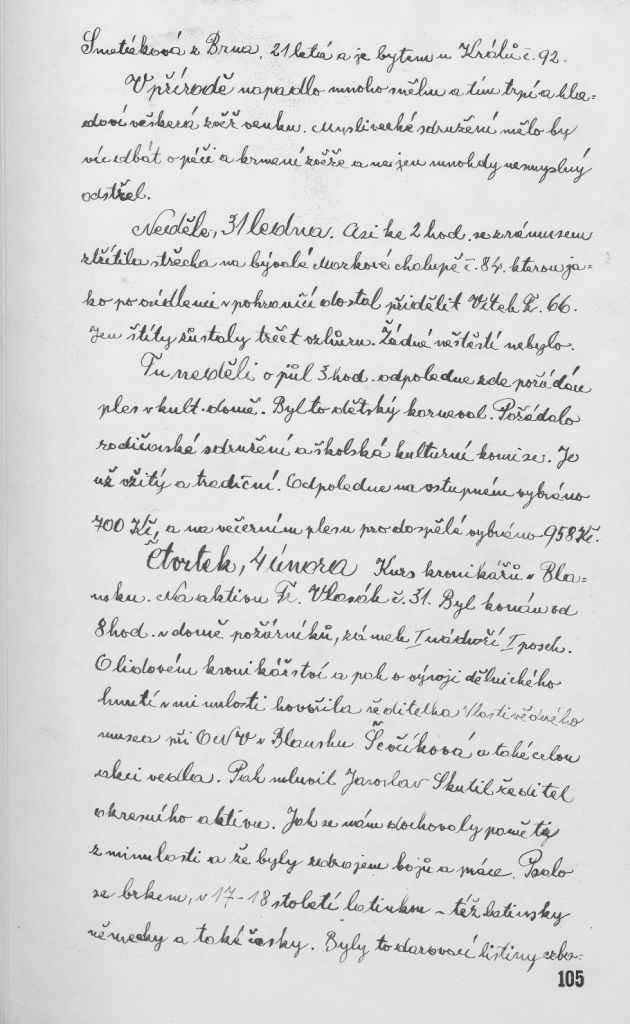 Smetáková z Brna, 21letá a je bytem u Králů č. 92.
V přírodě napadlo mnoho sněhu a tím trpí a hla-
doví veškerá zvěř venku. Myslivecké sdružení mělo by
víc dbát o péči a krmení zvěře a nejen mnohdy nesmyslný
odstřel.
Neděle, 31 ledna. Asi ke 2 hod. se z rámusem
zřítila střecha na bývalé Mazkové chalupě č. 84. kterou ja-
ko po osídlenci v pohraničí dostal přidělit Vítek Fr. 66.
Jen štíty zůstaly trčet vzhůru. Žádné neštěstí nebylo.
Tu neděli o půl 3 hod. odpoledne zde pořádán
ples v kult. domě. Byl to dětský karneval. Pořádalo
rodičovské sdružení a školská kulturní komise. Je
už vžitý a tradiční. Odpoledne na vstupném vybráno
700 Kč, a na večerním plesu pro dospělé vybráno 958 Kč.
Čtvrtek, 4 února Kurs kronikářů v Bla-
nsku. Na aktivu Fr. Vlasák č. 31. Byl konán od
8 hod. v domě požárníků, zámek I nádvoří I posch.
O lidovém kronikářství a pak o vývoji dělnického
hnutí v minulosti hovořila ředitelka Vlastivědného
musea při ONV v Blansku Ševčíková a také celou
akci vedla. Pak mluvil Jaroslav Skutil ředitel
okresního aktivu. Jak se nám dochovaly paměti
z minulosti a že byly zdrojem bojů a práce. Psalo
se brkem, v 17-18 století latinkou - též latinsky
německy a také česky. Byly to darovací listiny
105